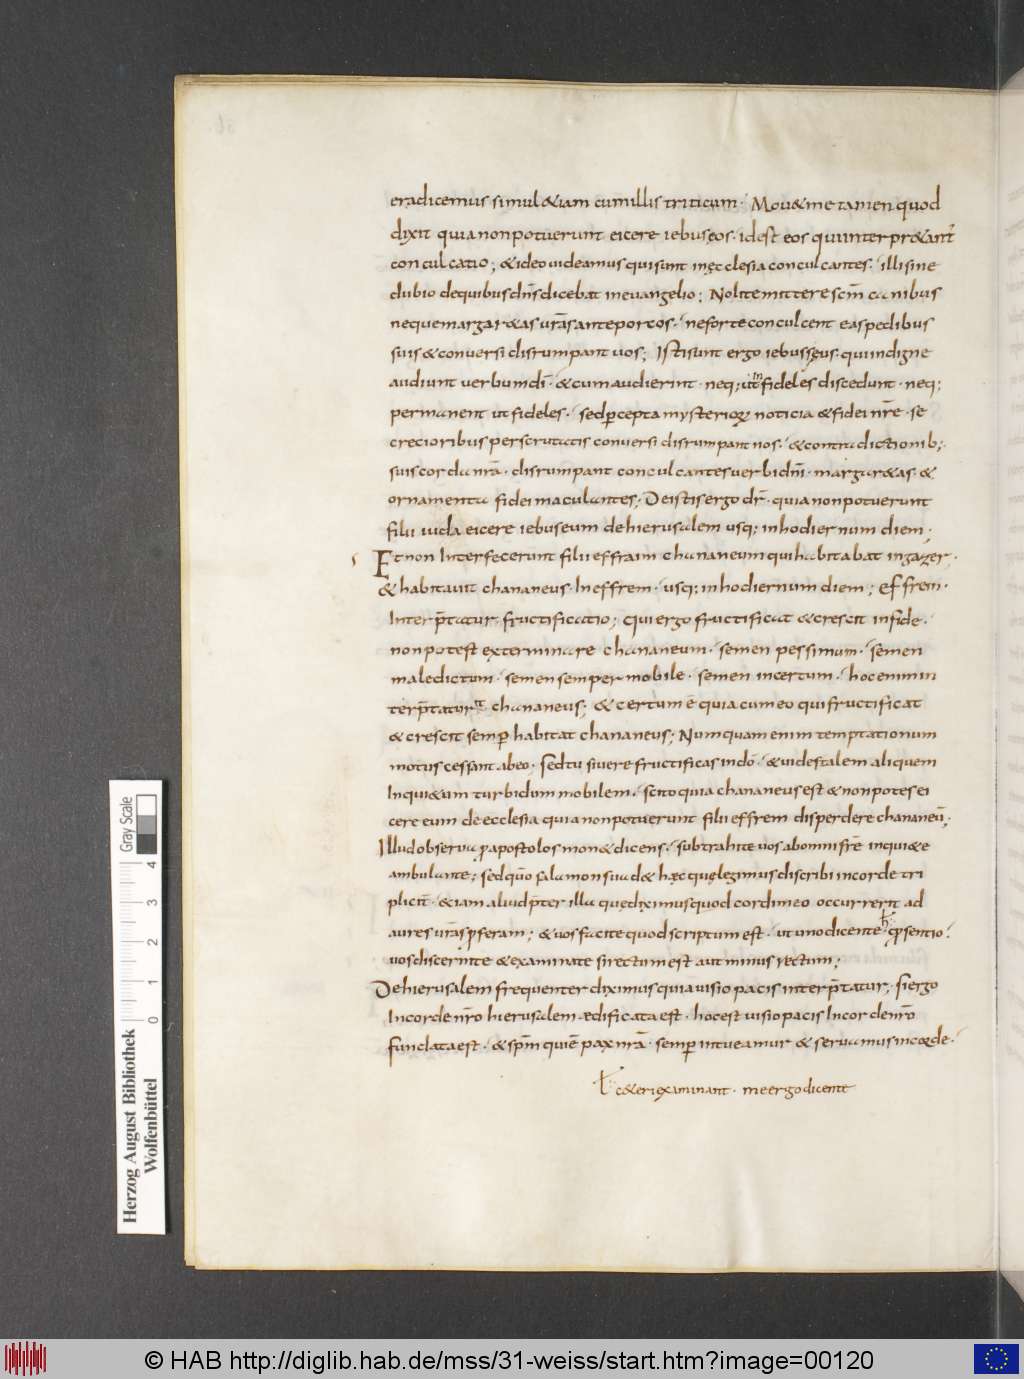 eradicemus simul & iam cum illis triticum · Mou& me tamen quod
dixit quia non potuerunt eicere iebuseos · id est eos qui interpr&ant̃
conculcatio ; & ideo uideamus qui sunt in ęcclesia conculcantes · illi sine
dubio de quibus dn̄s dicebat in euangelio ; Nolite mittere sc̄m canibus
neque margar&as ur̄as ante porcos · ne forte conculcent eas pedibus
suis & conuersi disrumpant uos ; Isti sunt ergo iebuseęus · qui indigne
audiunt uerbum dī · & cum audierint · neq; ut infideles discedunt · neq;
permanent ut fideles · sed percepta mysteriorum noticia & fidei nr̄e · se
crecioribus perscrutatis conuersi disrumpant nos · & contradictionib;
suis corda nr̄a · disrumpant conculcantes uerbi dn̄i · margar&as · &
ornamenta fidei maculantes ; De istis ergo dr̄ · quia non potuerunt
filii iuda eicere iebuseum de hierusalem usq; in hodiernum diem ·
Et non Interfecerunt filii effraim chananeum qui habitabat in gazer ·
& habitauit chananeus · In effrem · usq; in hodiernum diem ; Effrem ·
Interp̄tatur fructificatio ; Qui ergo fructificat & crescit in fide ·
non potest exterminare chananeum · semen pessimum · semen
maledictum · semen semper mobile · semen incertum · hoc enim in
terp̄tatur chananeus ; & certum ē quia cum eo qui fructificat
& crescit semp̄ habitat chananeus ; Numquam enim temptationum
motus cessant ab eo · sed tu si uere fructificas in dō · & uides talem aliquem
Inqui&um turbidum mobilem · scito quia chananeus est & non potes ei
cere eum de ecclesia quia non potuerunt filii effrem disperdere chananeū ·
Illud obserua p apostolos mon& dicens · subtrahite uos ab omni fr̄e inqui&e
ambulante ; sed quō salamon suad& hæc quę legimus discribi in corde tri
plicit̄ · & iam aliud p̄ter illa que diximus quod cordi meo occurrerit ad
aures ur̄as pferam ; & uos facite quod scriptum est · ut uno dicente h qp sentio
uos discernite & examinate si rectum est aut minus rectum ;
De hierusalem frequenter diximus quia uisio pacis interp̄tatur ; si ergo
In corde nr̄o hierusalem ædificata est · hoc est uisio pacis In corde nr̄o
fundata est · & xp̄m qui ē pax nr̄a · semp̄ intueamur & seruamus in corde ·
c&eri examinant · me ergo dicente
Gray Scale
4 3 2 1 0
Herzog August Bibliothek
Wolfenbüttel
© HAB http://diglib.hab.de/mss/31-weiss/start.htm?image=00120